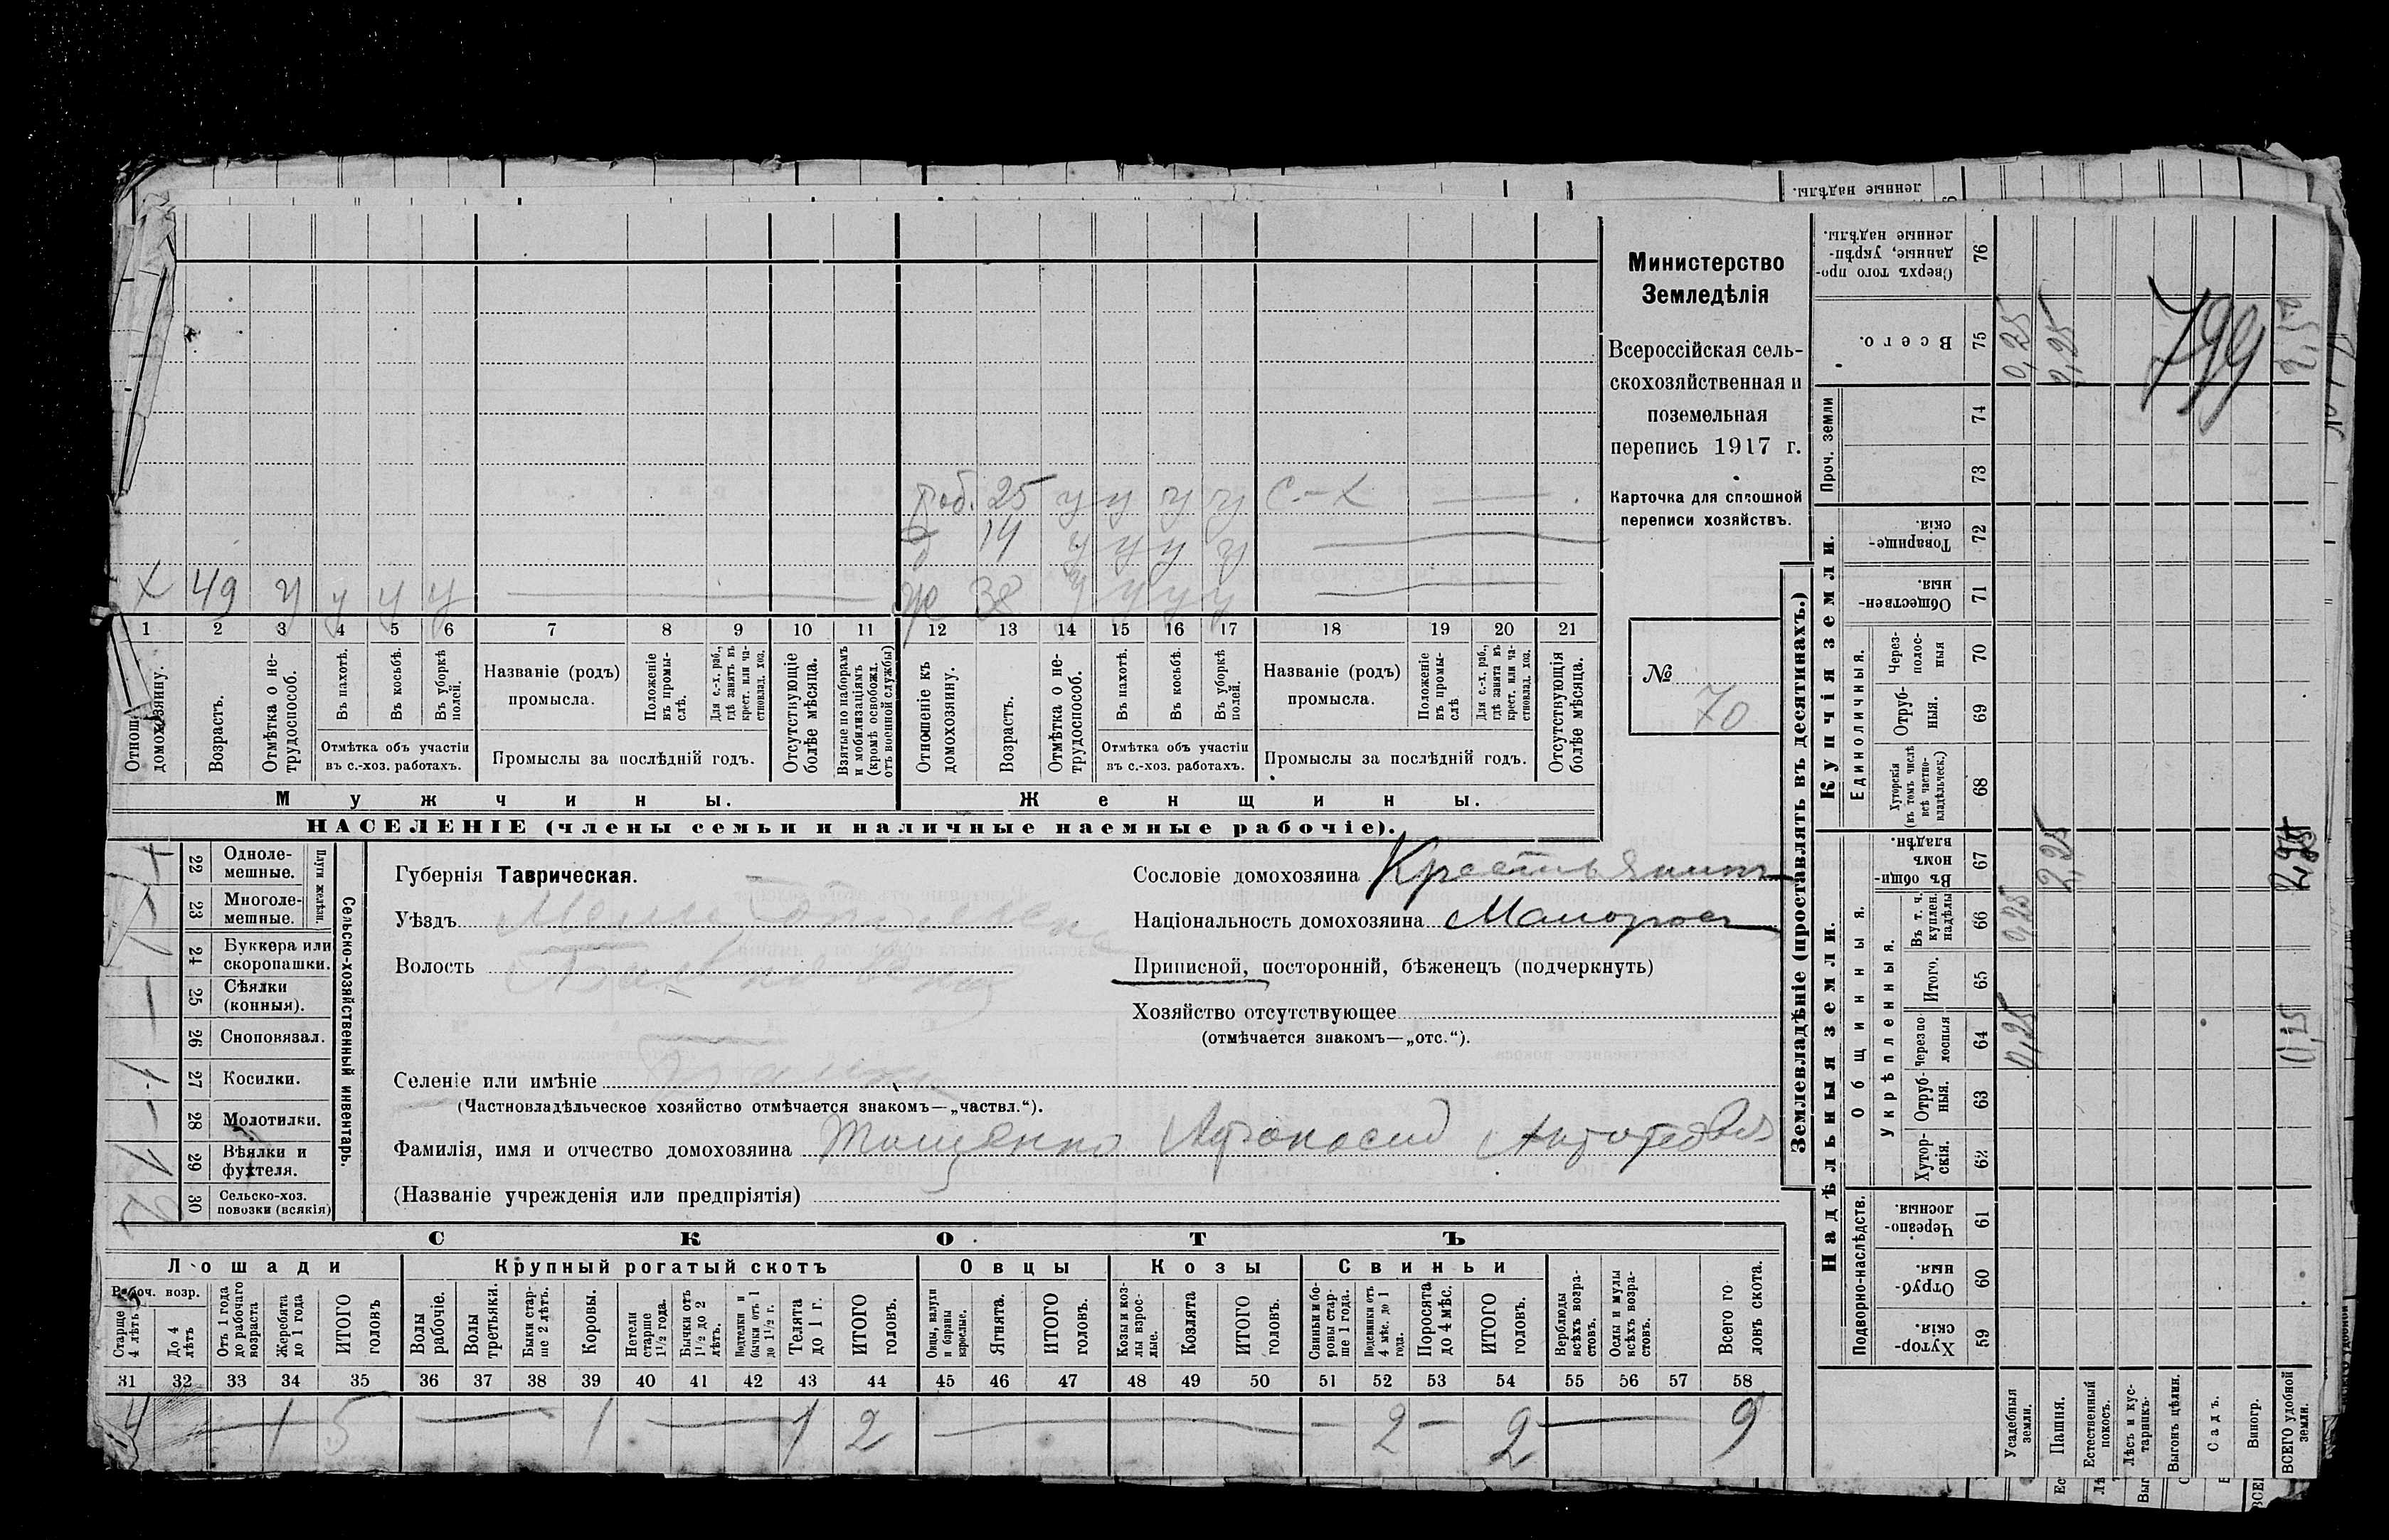 Министерство
Земледѣлія
Всероссійская сель-
скохозяйственная и
поземельная
перепись 1917 г.
Карточка для сплошной
переписи хозяйствъ.
№
70
раб. 25 у у у у С.-Х
14 у у у у
Х 49 у у у у
ж 38 у у у у
1 2 3 4 5 6 7 8 9 10 11 12 13 14 15 16 17 18 19 20 21
домохозяину.
Возрастъ.
Отмѣтка о не-
трудоспособ.
Въ пахотѣ.
Въ косьбѣ.
Въ уборкѣ
полей.
Отмѣтка объ участіи
въ с.-хоз. работахъ.
Названіе (родъ)
промысла.
Положеніе
въ промы-
слѣ.
Для с.-х. раб.,
гдѣ занятъ въ
крест. или ча-
стновлад. хоз.
Промыслы за послѣдній годъ.
Отсутствующіе
болѣе мѣсяца.
Взятые по наборамъ
и мобилизаціямъ
(кромѣ освобожд.
отъ военной службы)
Отношеніе къ
домохозяину.
Возрастъ.
Отмѣтка о не-
трудоспособ.
Въ пахотѣ.
Въ косьбѣ.
Въ уборкѣ
полей.
Отмѣтка объ участіи
въ с.-хоз. работахъ.
Названіе (родъ)
промысла.
Положеніе
въ промы-
слѣ
Для с.-х. раб.,
гдѣ занята въ
крест. или ча-
стновлад. хоз.
Промыслы за послѣдній годъ.
Отсутствующія
болѣе мѣсяца.
Мужчины.
Женщины.
НАСЕЛЕНІЕ (члены семьи и наличные наемные рабочіе).
Сельско-хозяйственный инвентарь.
Плуги желѣзн.
22 Одноле-
мешные.
23 Многоле-
мешные.
24 Буккера или
скоропашки.
25 Сѣялки
(конныя).
26 Сноповязал.
27 Косилки.
28 Молотилки.
29 Вѣялки и
фухтеля.
30 Сельско-хоз.
повозки (всякія)
Губернія Таврическая.
Уѣздъ
Волость
Селеніе или имѣніе
(Частновладѣльческое хозяйство отмѣчается знакомъ—„частвл.“).
Фамилія, имя и отчество домохозяина Тищенко Афанасий
(Названіе учрежденія или предпріятія)
Сословіе домохозяина Крестьянинъ
Національность домохозяина Малоросъ
Приписной, посторонній, бѣженецъ (подчеркнуть)
Хозяйство отсутствующее
(отмѣчается знакомъ—„отс.“).
СКОТЪ
Лошади
Крупный рогатый скотъ
Овцы
Козы
Свиньи
Рабоч. возр.
Старше
4 лѣтъ
До 4
лѣтъ
Отъ 1 года
до рабочаго
возраста
Жеребята
до 1 года
ИТОГО
головъ
Волы
рабочіе.
Волы
третьяки.
Быки стар-
ше 2 лѣтъ.
Коровы.
Нетели
старше
1½ года.
Бычки отъ
1½ до 2
лѣтъ.
Подтелки и
бычки отъ 1
до 1½ г.
Телята
до 1 г.
ИТОГО
головъ.
Овцы, валухи
и бараны
взрослые.
Ягнята.
ИТОГО
головъ.
Козы и коз-
лы взрос-
лые.
Козлята
ИТОГО
головъ.
Свиньи и бо-
ровы стар-
ше 1 года.
Подсвинки отъ
4 мѣс. до 1
года.
Поросята
до 4 мѣс.
ИТОГО
головъ.
Верблюды
всѣхъ возра-
стовъ.
Ослы и мулы
всѣхъ возра-
стовъ.
Всего го-
ловъ скота.
31 32 33 34 35 36 37 38 39 40 41 42 43 44 45 46 47 48 49 50 51 52 53 54 55 56 57 58
4 — 1 5 — 1 — 1 2 — — 2 — 2 — 9
Землевладѣніе (проставлять въ десятинахъ.)
Купчія земли.
Надѣльныя земли.
Сверхъ того про-
данные, укрѣп-
ленные надѣлы.
76
Всего.
75
0,25
2,25
799
2,5
Проч. земли
74
73
Товарище-
скія.
72
Обществен-
ныя.
71
Единоличныя.
Через-
полос-
ныя
70
Отруб-
ныя.
69
Хуторскія
(въ томъ числѣ
всѣ частно-
владѣльческ.)
68
Общинныя.
Въ общин-
номъ
владѣн.
67
2,25
Укрѣпленныя.
Въ т. ч.
куплен.
надѣлы
66
0,25
Итого.
65
Черезпо-
лосныя
64
0,25
0,25
Отруб-
ныя.
63
Хутор-
скія.
62
Подворно-наслѣдств.
Черезпо-
лосныя.
61
Отруб-
ныя.
60
Хутор-
скія.
59
Усадебныя
земли.
Пашня.
Естественный
покосъ.
Лѣсъ и кус-
тарникъ.
Выгонъ цѣлин.
Садъ.
Виногр.
ВСЕГО удобной
земли.